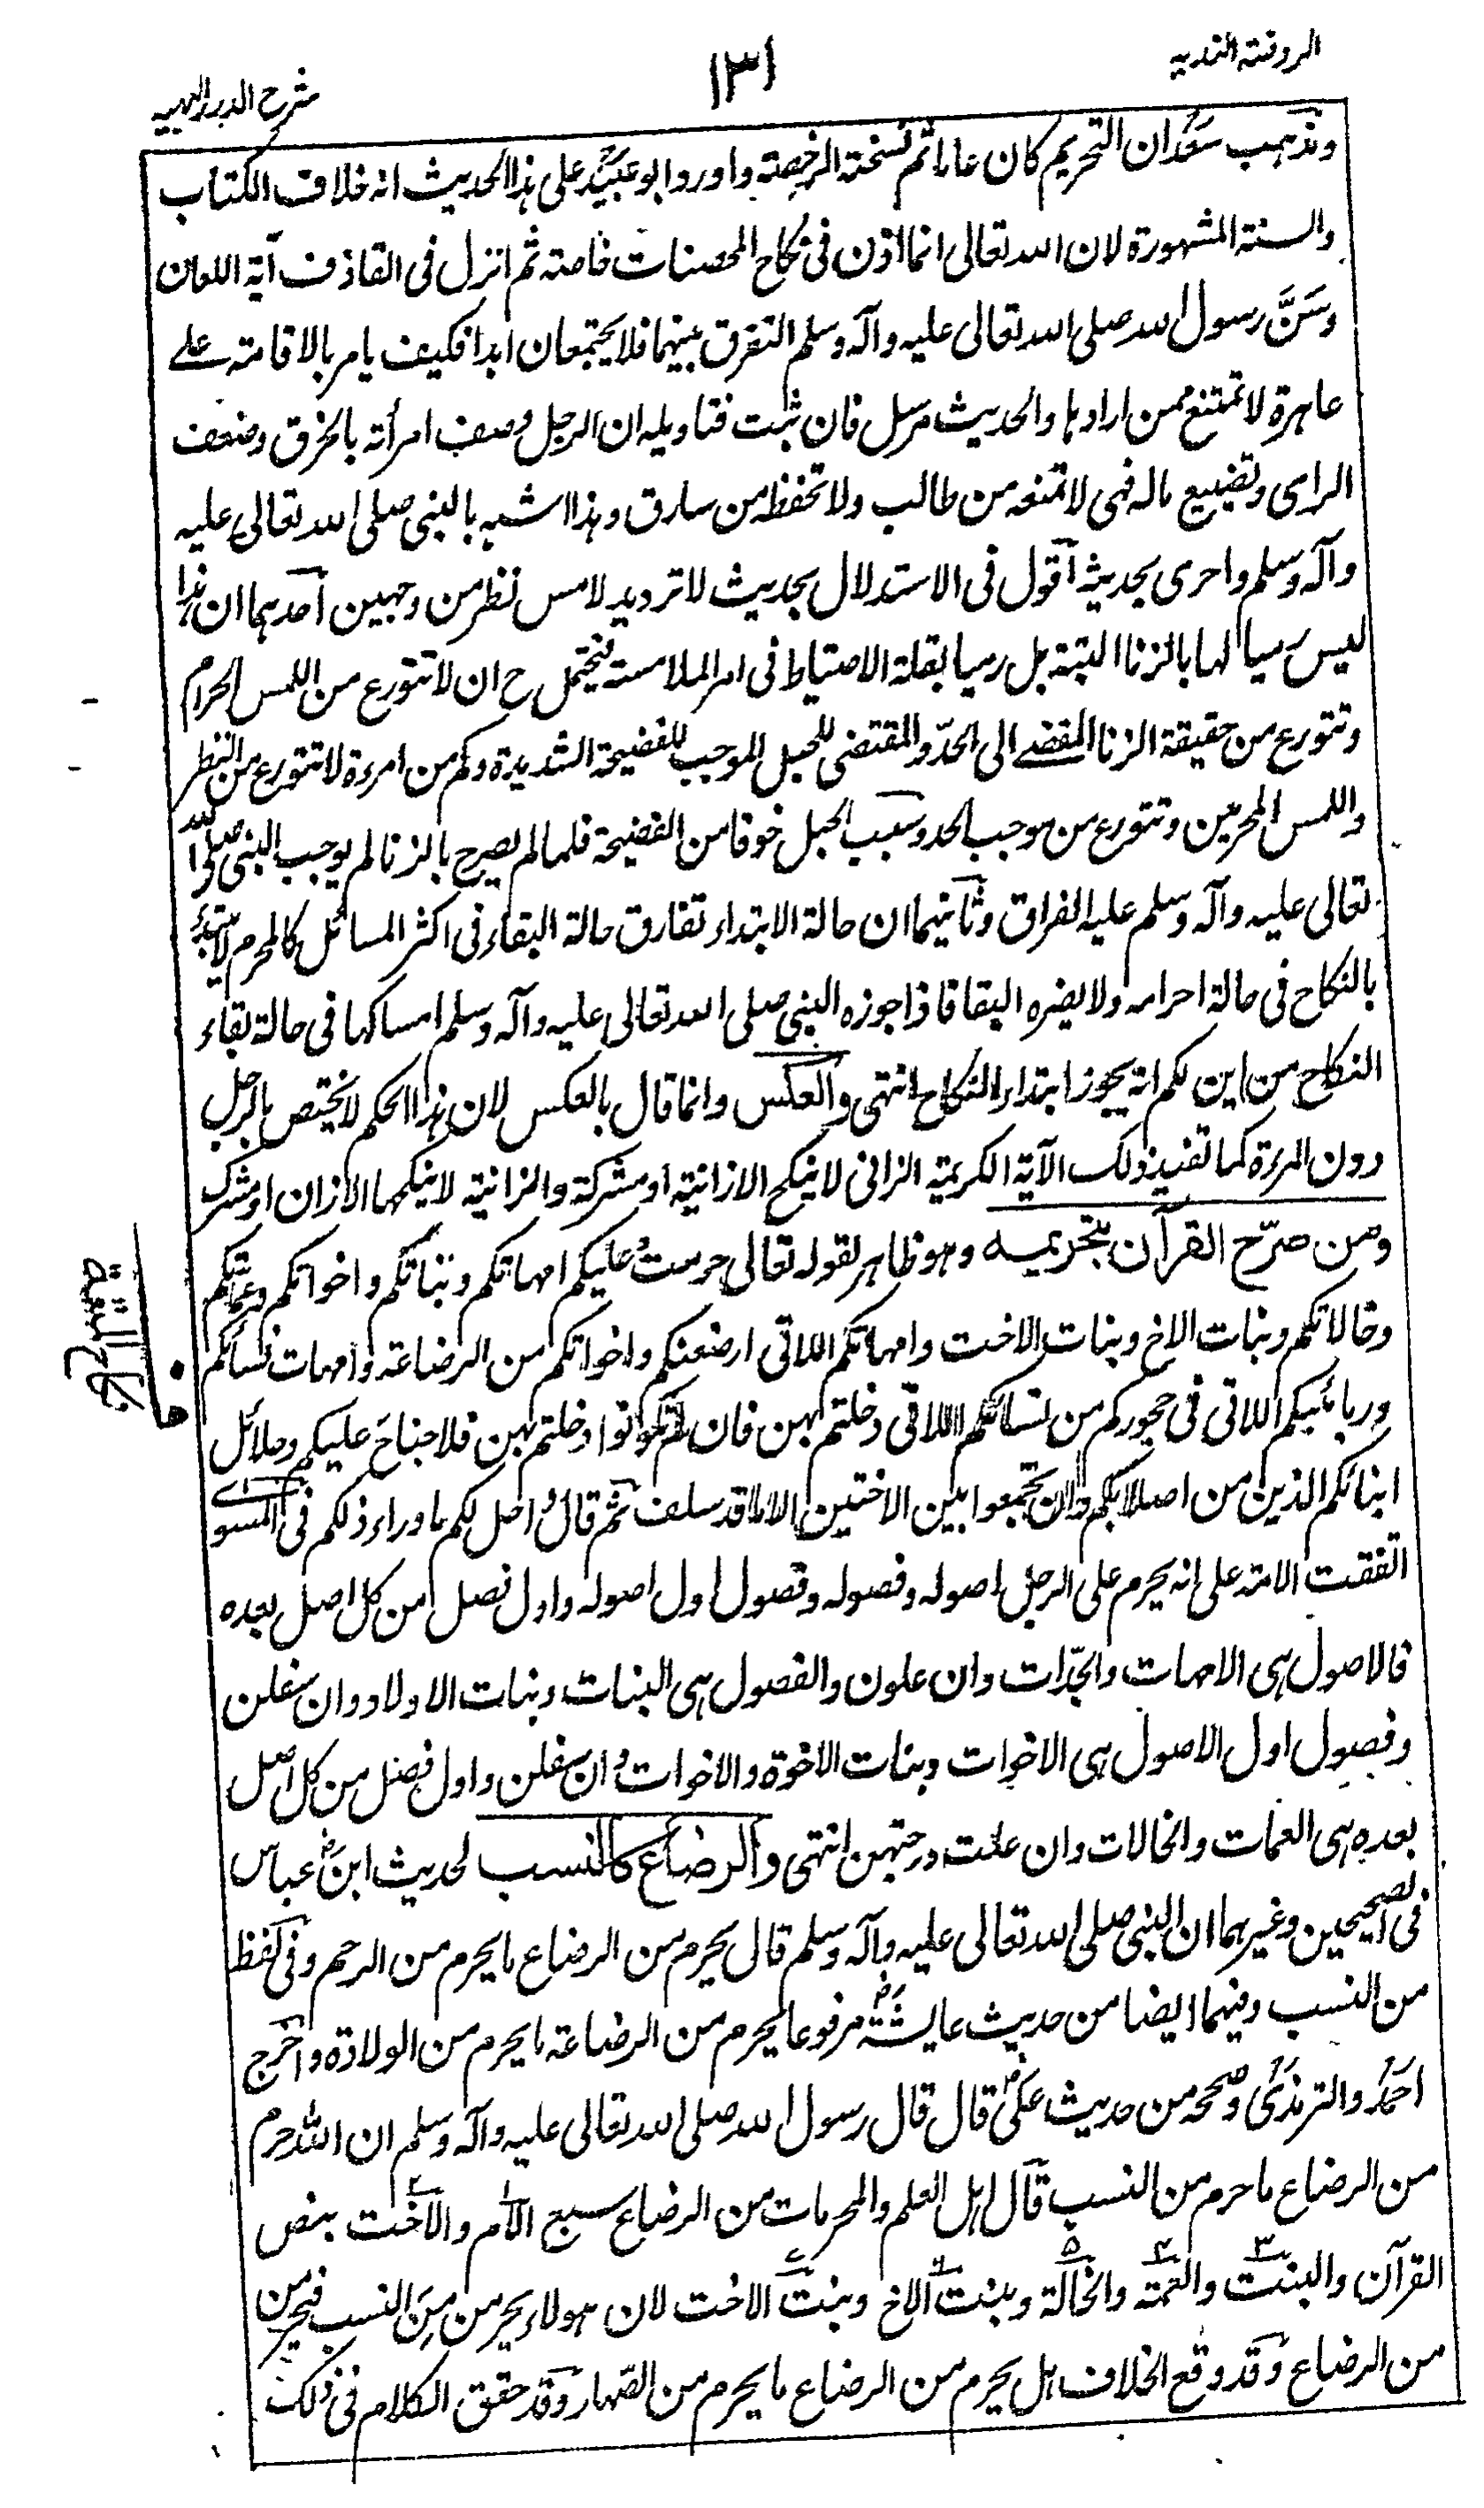 الروضة الندية
١٣
شرح الدرر البهية
وذهب سعيد ان التحريم كان عاما ثم نسخته الرخصة واورد ابو عبيد على هذا الحديث انه خلاف الكتاب
والسنة المشهورة لان الله تعالى انما اذن فى نكاح المحصنات خاصة ثم انزل فى القاذف آية اللعان
وسَنَّ رسول الله صلى الله تعالى عليه وآله وسلم التفرق بينهما فلا يجتمعان ابدا فكيف يامر بالاقامة على
عاهرة لا تمتنع ممن ارادها والحديث مرسل فان ثبت فتاويله ان الرجل وصف امرأته بالخرق وضعف
الراى وتضييع ماله فهى لا تمنعه من طالب ولا تحفظه من سارق وهذا اشبه بالنبى صلى الله تعالى عليه
وآله وسلم واحرى بحديثه اقول فى الاستدلال بحديث لا ترد يد لامس نظر من وجهين احدهما ان هذا
ليس رميا لها بالزنا البتة بل رميا بقلة الاحتياط فى امر الملامسة فيحتمل ح ان لا تتورع من اللمس الحرام
وتتورع من حقيقة الزنا المفضے الى الحدّ والمقتضى للحبل الموجب للفضيحة الشديدة وكم من امرءة لا تتورع من النظر
واللمس المحرمين وتتورع من موجب الحد وسبب الحبل خوفا من الفضيحة فلما لم يصرح بالزنا لم يوجب النبى صلى الله
تعالى عليه وآله وسلم عليه الفراق وثانيهما ان حالة الابتداء تفارق حالة البقاء فى اكثر المسائل كالمحرم لا يبتدئ
بالنكاح فى حالة احرامه ولا يضره البقا فاذا جوزه النبى صلى الله تعالى عليه وآله وسلم امساكها فى حالة بقاء
النكاح من اين لكم انه يجوز ابتداء النكاح انتهى والعكس وانما قال بالعكس لان هذا الحكم لا يختص بالرجل
دون المرءة كما تفيد ذلك الآية الكريمة الزانى لا ينكح الا زانية او مشركة والزانية لا ينكحها الا زان او مشرك
ومن صرّح القرآن بتحريمه وهو ظاهر لقوله تعالى حرمت عليكم امهاتكم وبناتكم واخواتكم وعماتكم
وخالاتكم وبنات الاخ وبنات الاخت وامهاتكم اللاتى ارضعنكم واخواتكم من الرضاعة وامهات نسائكم
وربائبكم اللاتى فى حجوركم من نسائكم اللاتى دخلتم بهن فان لم تكونوا دخلتم بهن فلا جناح عليكم وحلائل
ابنائكم الذين من اصلابكم وان تجمعوا بين الاختين الا ما قد سلف ثم قال واحل لكم ما وراء ذلكم فى المسوے
اتفقت الامة على انه يحرم على الرجل اصوله وفصوله وفصول اول اصوله واول فصل من كل اصل بعده
فالاصول هى الامهات والجدّات وان علون والفصول هى البنات وبنات الاولاد وان سفلن
وفصول اول الاصول هى الاخوات وبنات الاخوة والاخوات وان سفلن واول فصل من كل اصل
بعده هى العمات والخالات وان علت درجتهن انتهى والرضاع كالنسب لحديث ابن عباس
فى الصحيحين وغيرهما ان النبى صلى الله تعالى عليه وآله وسلم قال يحرم من الرضاع ما يحرم من الرحم وفى لفظ
من النسب وفيهما ايضا من حديث عايشة مرفوعا يحرم من الرضاعة ما يحرم من الولادة واخرج
احمد والترمذى وصححه من حديث على قال قال رسول الله صلى الله تعالى عليه وآله وسلم ان الله حرم
من الرضاع ما حرم من النسب قال اهل العلم والمحرمات من الرضاع سبع الام والاخت بنص
القرآن والبنت والعمة والخالة وبنت الاخ وبنت الاخت لان هولاء يحرمن مِنَ النسب فيحرمن
من الرضاع وقد وقع الخلاف هل يحرم من الرضاع ما يحرم من الصهار وقد حقق الكلام فى ذلك